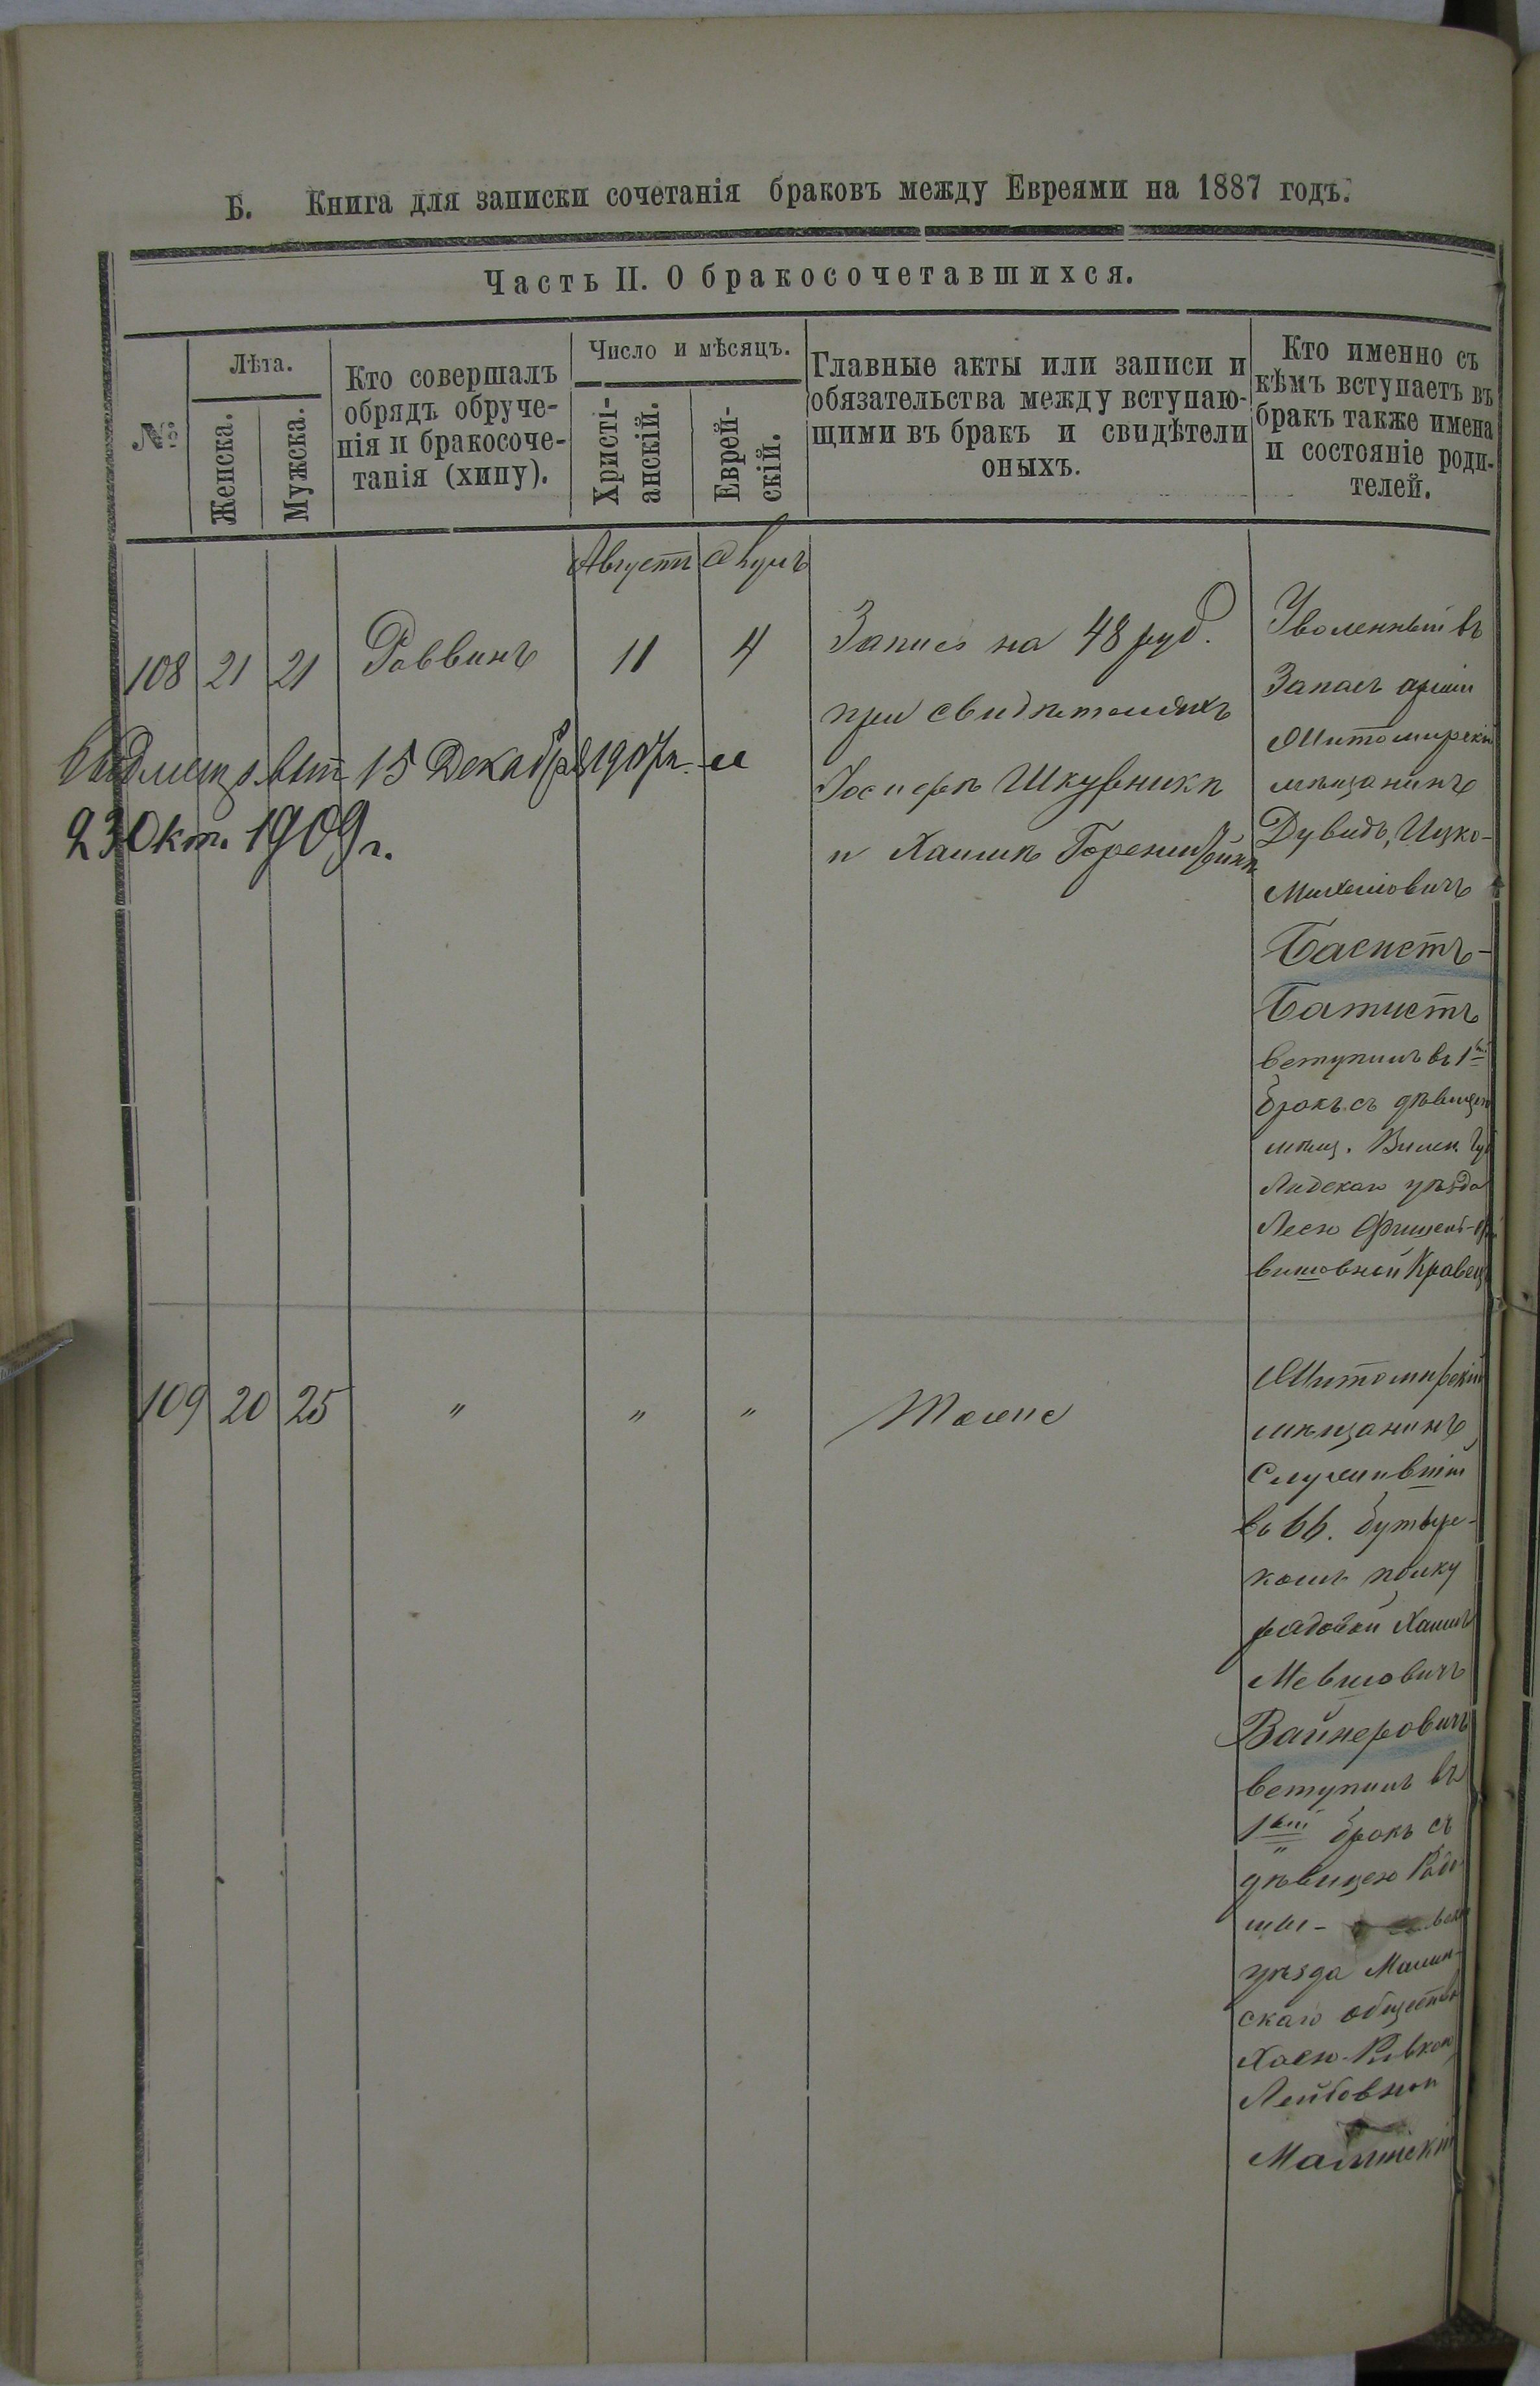 Б. Книга для записки сочетанія браковъ между Евреями на 1887 годъ.
Часть II. О бракосочетавшихся.
№
Лѣта.
Женска.
Мужска.
Кто совершалъ
обрядъ обруче-
нія и бракосоче-
танія (хипу).
Число и мѣсяцъ.
Христі-
анскій.
Еврей-
скій.
Главные акты или записи и
обязательства между вступаю-
щими въ бракъ и свидѣтели
оныхъ.
Кто именно съ
кѣмъ вступаетъ въ
бракъ также имена
и состояніе роди-
телей.
Августъ
108 21 21 Раввинъ 11 4
Запись на 48 руб.
при свидѣтеляхъ
Іосифѣ Шкурникѣ
и Хаимѣ
15 Декабря 1907г. и
23 Окт. 1909г.
Уволенный въ
Запасъ арміи
Житомирскій
мѣщанинъ
Дувидъ, Ицко-
Михелевичъ
Басистъ-
Батистъ
вступилъ въ 1ый
бракъ съ дѣвицею
мѣщ. Вилен. Губ
Лидскаго уѣзда
Леею
Кравецъ
109 20 25 " " " Тоже
Житомирскій
мѣщанинъ
Служившій
въ 66. бутыр-
комъ полку
рядовой Хаимъ
Мевшовичъ
Вайнеровичъ
вступилъ въ
1ый бракъ съ
дѣвицею Радо-
мы-
уѣзда Малин-
скаго общества
Хаею-Ривкою
Лейбовной